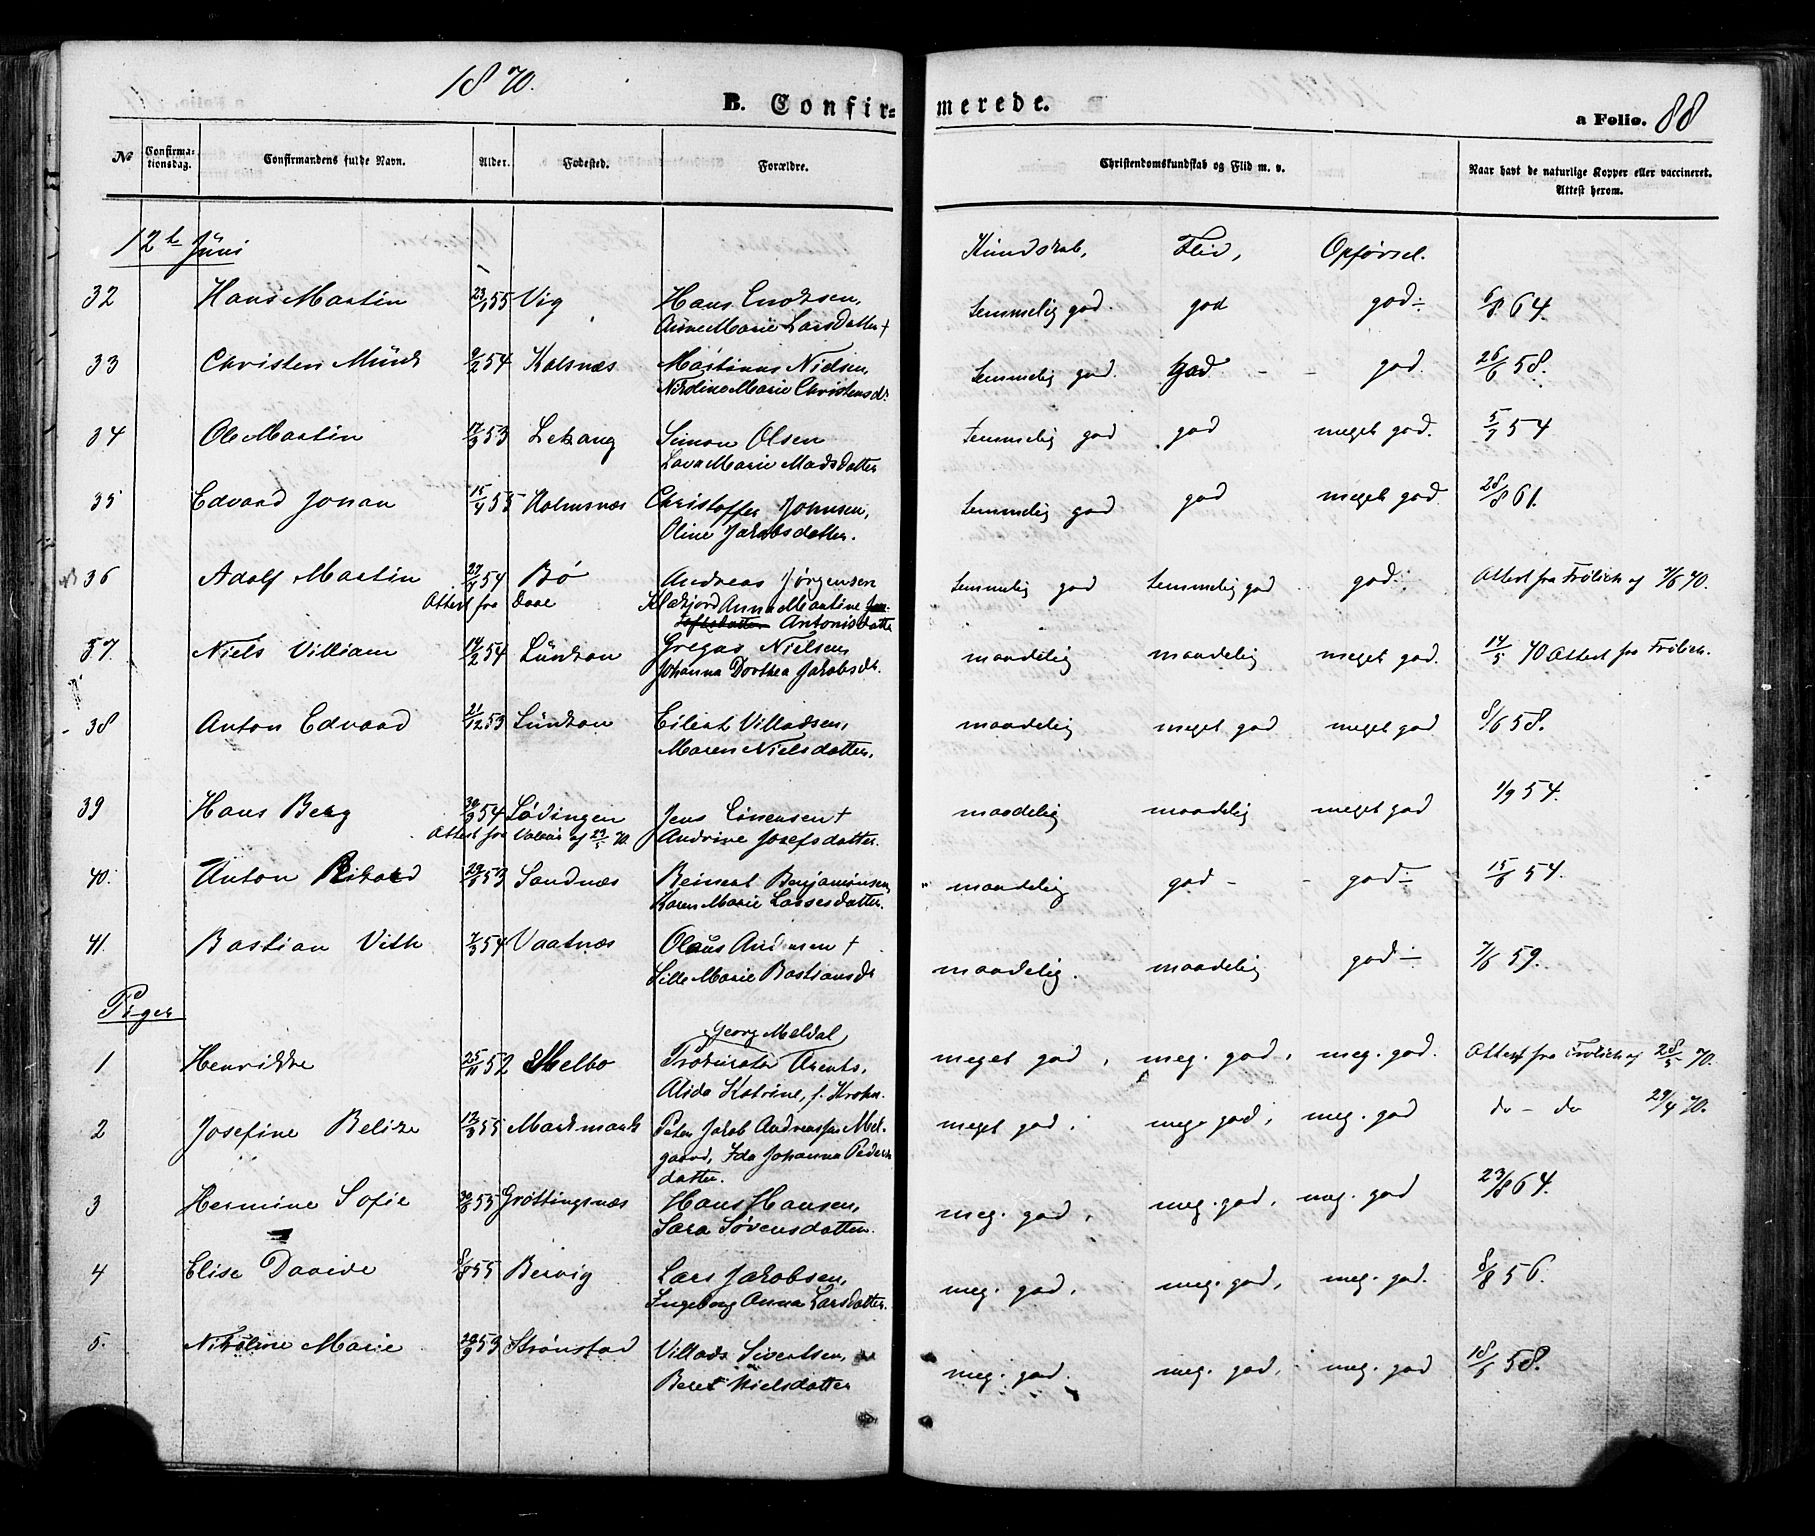 1870.
B. Confirmerede.
a Folio. 88
No Confirmationsdag. Confirmandens fulde Navn. Alder. Fødested. Forældre. Christendomskundskab og Flid m. v. Naar havt de naturlige Kopper eller vaccineret. Attest herom.
12te Juni Kundskab, Flid, Opførsel.
32 Hans Martin 23/1 55 Vig Hans Enoksen, temmelig god. god god ÷ 6/8 64.
Anne Marie Larsdatter +
33 Christen Münk 9/2 54 Kalsnæs Martinus Nielsen, temmelig god god - - god. 26/6 58.
Nikoline Marie Christensdr.
34 Ole Martin 17/9 53 Lekang Simon Olsen temmelig god god meget god. 5/7 54
Lava Marie Madsdatter
35 Edvard Johan 15/4 55 Holmsnæs Christoffer Johnsen, temmelig god god meget god 28/8 61.
Oline Jakobsdatter.
36 Adolf Martin 27/4 54 Bø Andreas Jørgensen temmelig god temmelig god god. Attest fra Frølich af 7/6 70.
Attest fra Daae Klakjord Anna Martine
Antonisdatter
37. Niels Villiam 14/2 54 Lunkan Gregus Nielsen, maadelig maadelig meget god. 14/5 70 Attest fra Frølich.
Johanna Dorthea Jakobsdr.
38 Anton Edvard 21/12 53 Lunkan Eilert Villadsen, maadelig meget god meget god 8/6 58.
Maren Nielsdatter,
39 Hans Berg 30/9 54 Lødingen Jens Sørensen + maadelig maadelig meget god 1/9 54.
Attest fra af 29/5 70. Andrine Josefsdatter.
40. Anton Rikard 29/6 53 Sandnæs Reinert Benjaminsen, maadelig god - - god ÷ 15/6 54.
Karen Marie Lassesdatter.
41. Bastian Vith 7/3 54 Vaatnæs Olaus Andersen + maadelig. maadelig god - 7/6 59.
Sille Marie Bastiansdr
Piger
Georg Meldal
1 Henrikke 25/11 52 Melbo Prokurator Arents, meget god, meg. god, meg. god. Attest fra Frølich af 28/5 70.
Alida Katrine, f. Krohn.
2 Josefine Belize 17/3 55 Markmark Peter Jakob Andreassen Melgaard, meget god, meg. god, meg. god do - do 29/4 70.
Ida Johanna Pedersdatter.
3 Hermine Sofie 30/8 55 Grøttingsnæs Hans Hansen, meg. god, meg. god, meg. god 23/8 64.
Sara Sørensdatter.
4 Elise Davide 8/8 55 Bervig Lars Jakobsen, meg. god, meg. god, meg. god. 8/8 56.
Ingeborg Anna Larsdatter.
5. Nikoline Marie 29/9 53 Strønstad Villads Sivertsen, meg. god. meg. god, meg. god 18/6 58.
Beret Nielsdatter